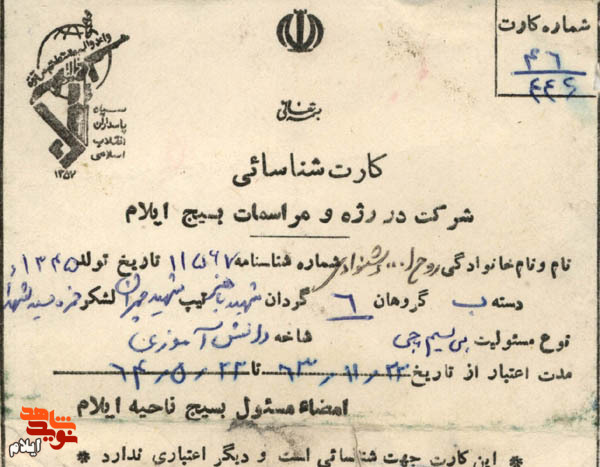 شماره کارت
۴۶
۴۴۶
واعدوا لهم ما استطعتم من قوة
سپاه
پاسداران
انقلاب
اسلامی
۱۳۵۷
بسمه تعالی
کارت شناسائی
شرکت در رژه و مراسمات بسیج ایلام
نام و نام خانوادگی روح ا... شماره شناسنامه ۱۱۵۶۷ تاریخ تولد ۱۳۴۵
دسته ب گروهان ۶ گردان شهید باهنر تیپ شهید چمران لشکر
نوع مسئولیت بی سیم چی شاخه دانش آموزی
مدت اعتبار از تاریخ ۶۳/۱۱/۲۲ تا ۶۴/۵/۲۲
امضاء مسئول بسیج ناحیه ایلام
* این کارت جهت شناسائی است و دیگر اعتباری ندارد *
نوید شاهد
ایلام